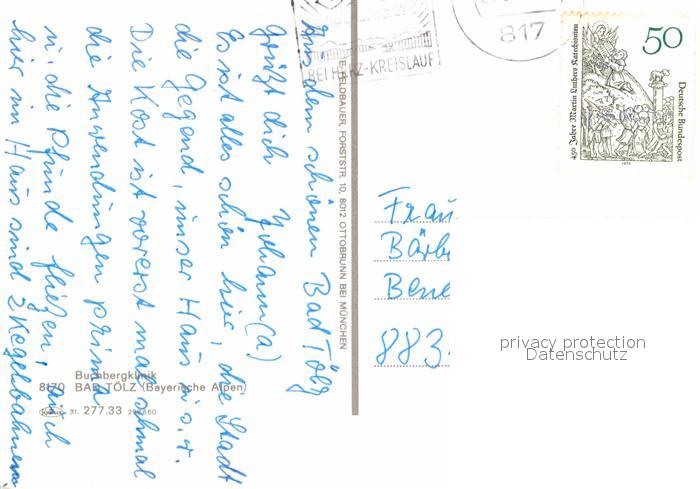 Aus dem schönen Bad Tölz
grüßt dich Johann(a)
Es ist alles schön hier, die Stadt
die Gegend, unser Haus u.s.w.
Die Kost ist vorerst mal schmal
die Anwendungen prima
die Pfunde fließen, auch
hier im Haus sind 2 Kegelbahnen
E. FELDBAUER, FORSTSTR. 10, 8012 OTTOBRUNN BEI MÜNCHEN
Buchbergklinik
8170 BAD TÖLZ (Bayerische Alpen)
31. 277.33
BEI HERZ-KREISLAUF
817
50
Deutsche Bundespost
450 Jahre Martin Luthers Katechismus
1979
Frau
Bärb
Bene
883
privacy protection
Datenschutz